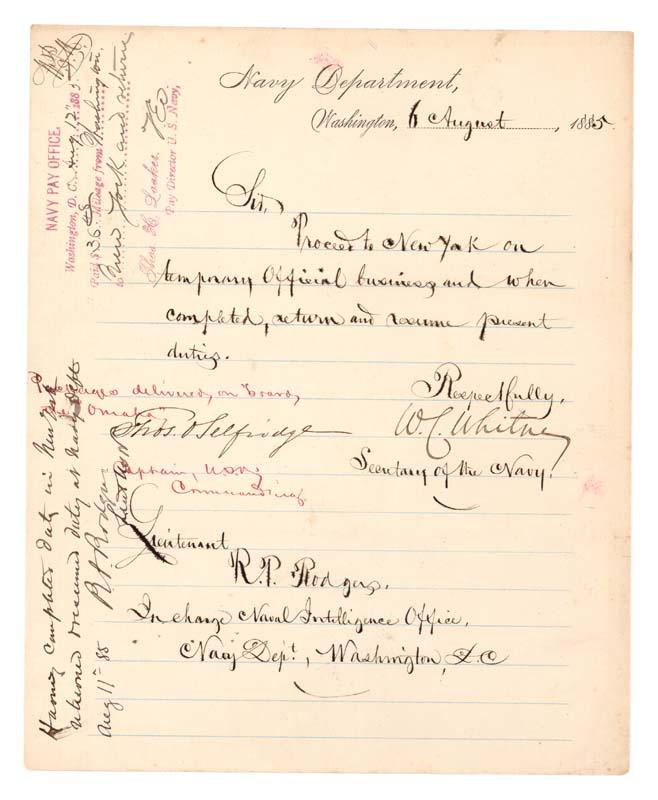 Navy Department,
Washington, 6 August, 1885.
Sir,
Proceed to New York on
temporary Official business, and when
completed, return and resume present
duties.
Respectfully,
W. C. Whitney
Secretary of the Navy.
Packages delivered, on board,
the "Omaha"
Thos. O Selfridge
Captain, U.S.N.
Commanding
Lieutenant
R. P. Rodgers,
In charge Naval Intelligence Office,
Navy Dep't, Washington, D.C
NAVY PAY OFFICE,
Washington, D. C. Aug 12" 1885
Paid $36 48 Mileage from Washington,
to New York and return
Thos. H. Looker
Pay Director U. S. Navy,
Having completed duty in New York
returned & resumed duty at Navy Dept
Aug 11th 85 R. P. Rodgers